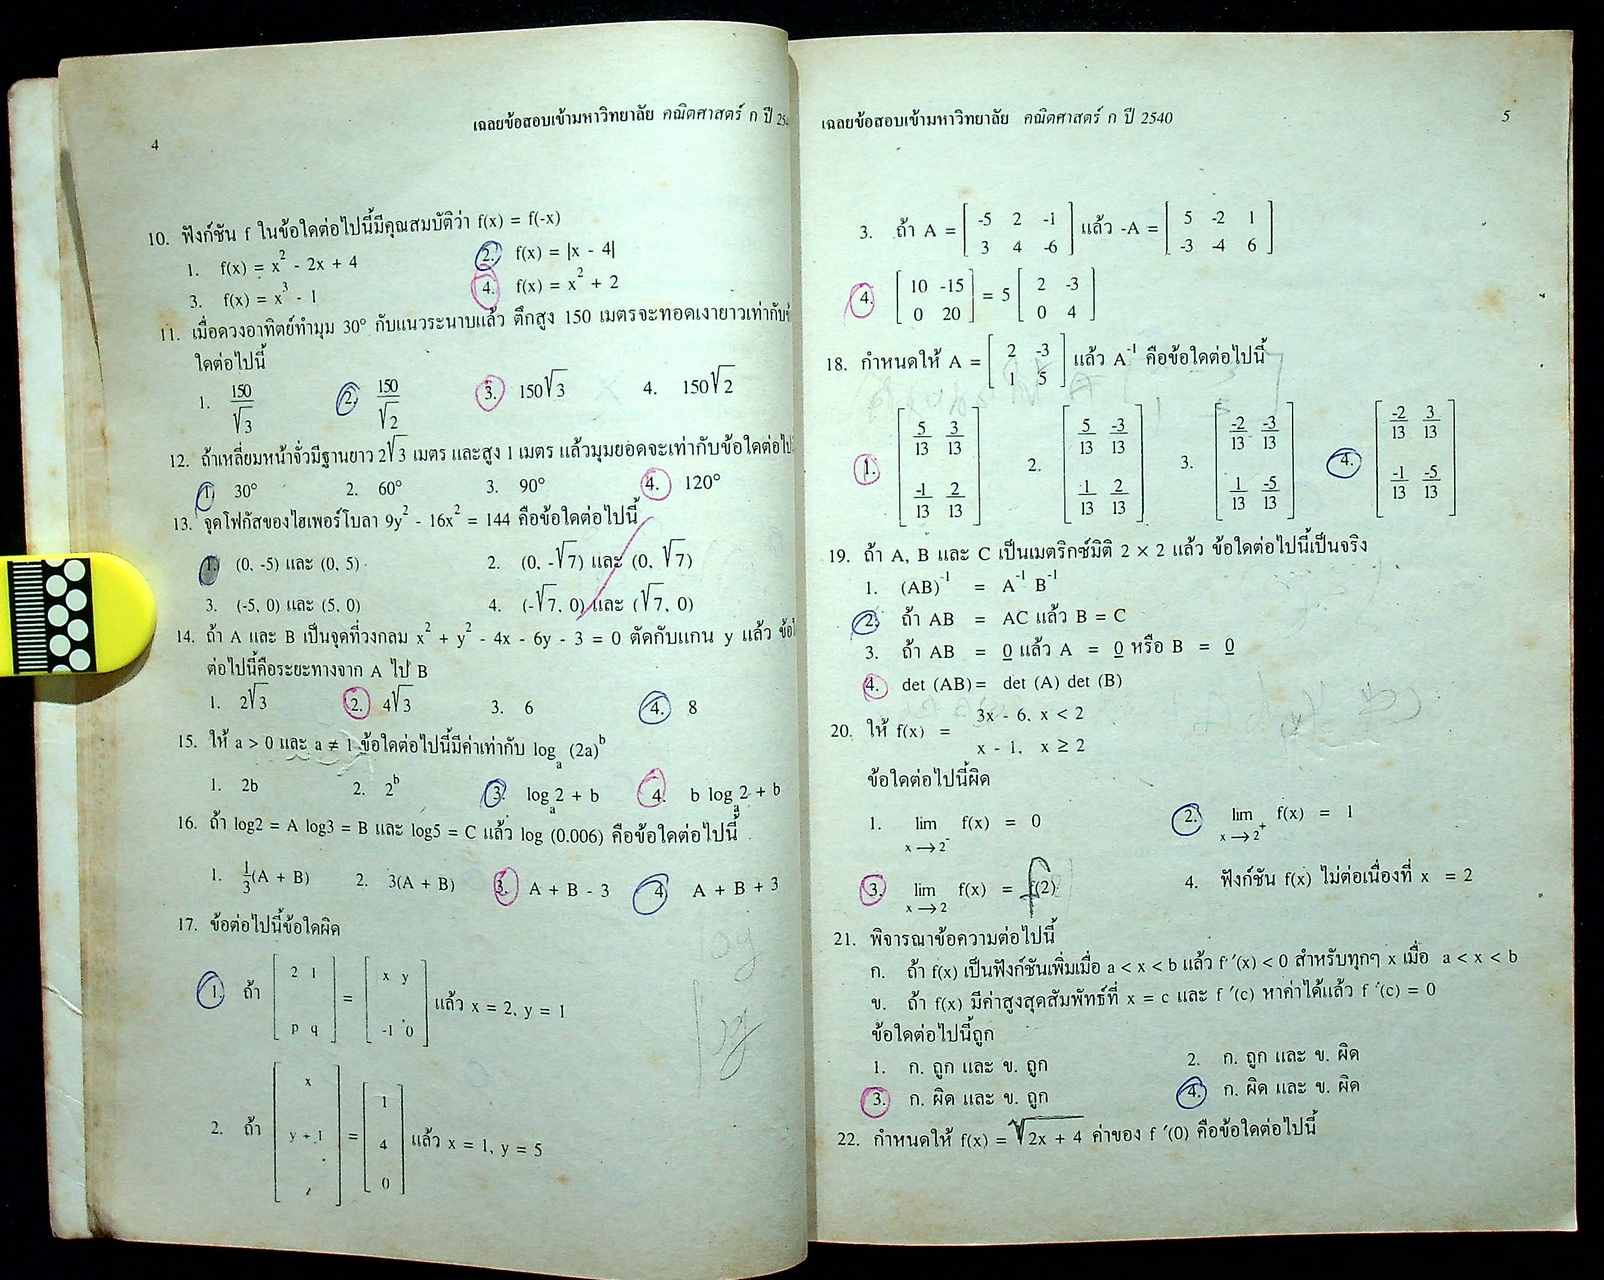 4
เฉลยข้อสอบเข้ามหาวิทยาลัย คณิตศาสตร์ ก ปี
10. ฟังก์ชัน f ในข้อใดต่อไปนี้มีคุณสมบัติว่า f(x) = f(-x)
1. f(x) = x² - 2x + 4 2. f(x) = |x - 4|
3. f(x) = x³ - 1 4. f(x) = x² + 2
11. เมื่อดวงอาทิตย์ทำมุม 30° กับแนวระนาบแล้ว ตึกสูง 150 เมตรจะทอดเงายาวเท่ากับ
ใดต่อไปนี้
1. 150/√3 2. 150/√2 3. 150√3 4. 150√2
12. ถ้าเหลี่ยมหน้าจั่วมีฐานยาว 2√3 เมตร และสูง 1 เมตร แล้วมุมยอดจะเท่ากับข้อใดต่อไป
1. 30° 2. 60° 3. 90° 4. 120°
13. จุดโฟกัสของไฮเพอร์โบลา 9y² - 16x² = 144 คือข้อใดต่อไปนี้
1. (0, -5) และ (0, 5) 2. (0, -√7) และ (0, √7)
3. (-5, 0) และ (5, 0) 4. (-√7, 0) และ (√7, 0)
14. ถ้า A และ B เป็นจุดที่วงกลม x² + y² - 4x - 6y - 3 = 0 ตัดกับแกน y แล้ว
ต่อไปนี้คือระยะทางจาก A ไป B
1. 2√3 2. 4√3 3. 6 4. 8
15. ให้ a > 0 และ a ≠ 1 ข้อใดต่อไปนี้มีค่าเท่ากับ logₐ (2a)ᵇ
1. 2b 2. 2ᵇ 3. logₐ2 + b 4. b logₐ2 + b
16. ถ้า log2 = A log3 = B และ log5 = C แล้ว log (0.006) คือข้อใดต่อไปนี้
1. 1/3(A + B) 2. 3(A + B) 3. A + B - 3 4. A + B + 3
17. ข้อต่อไปนี้ข้อใดผิด
2 1 x y
1. ถ้า = แล้ว x = 2, y = 1
p q -1 0
x 1
2. ถ้า y + 1 = 4 แล้ว x = 1, y = 5
0
log
log
เฉลยข้อสอบเข้ามหาวิทยาลัย คณิตศาสตร์ ก ปี 2540 5
-5 2 -1 5 -2 1
3. ถ้า A = แล้ว -A =
3 4 -6 -3 -4 6
10 -15 2 -3
4. = 5
0 20 0 4
2 -3
18. กำหนดให้ A = แล้ว A⁻¹ คือข้อใดต่อไปนี้
1 5
5/13 3/13 5/13 -3/13 -2/13 -3/13 -2/13 3/13
1. 2. 3. 4.
-1/13 2/13 1/13 2/13 1/13 -5/13 -1/13 -5/13
19. ถ้า A, B และ C เป็นเมตริกซ์มิติ 2 × 2 แล้ว ข้อใดต่อไปนี้เป็นจริง
1. (AB)⁻¹ = A⁻¹ B⁻¹
2. ถ้า AB = AC แล้ว B = C
3. ถ้า AB = 0 แล้ว A = 0 หรือ B = 0
4. det (AB) = det (A) det (B)
3x - 6, x < 2
20. ให้ f(x) =
x - 1, x ≥ 2
ข้อใดต่อไปนี้ผิด
1. lim f(x) = 0 2. lim f(x) = 1
x → 2⁻ x → 2⁺
3. lim f(x) = f(2) 4. ฟังก์ชัน f(x) ไม่ต่อเนื่องที่ x = 2
x → 2
21. พิจารณาข้อความต่อไปนี้
ก. ถ้า f(x) เป็นฟังก์ชันเพิ่มเมื่อ a < x < b แล้ว f ′(x) < 0 สำหรับทุกๆ x เมื่อ a < x < b
ข. ถ้า f(x) มีค่าสูงสุดสัมพัทธ์ที่ x = c และ f ′(c) หาค่าได้แล้ว f ′(c) = 0
ข้อใดต่อไปนี้ถูก
1. ก. ถูก และ ข. ถูก 2. ก. ถูก และ ข. ผิด
3. ก. ผิด และ ข. ถูก 4. ก. ผิด และ ข. ผิด
22. กำหนดให้ f(x) = √2x + 4 ค่าของ f ′(0) คือข้อใดต่อไปนี้